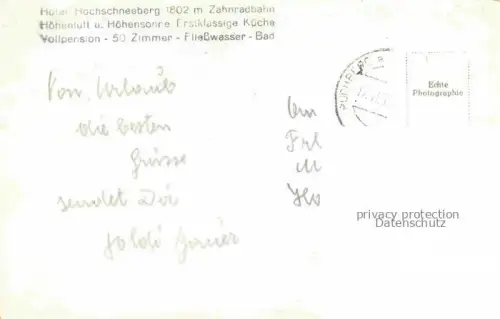 Hotel Hochschneeberg 1802 m Zahnradbahn
Höhenluft u. Höhensonne Erstklassige Küche
Vollpension - 50 Zimmer - Fließwasser - Bad
Echte
Photographie
Vom Urlaub
die besten
Grüsse
sendet Dir
An
Frl
privacy protection
Datenschutz